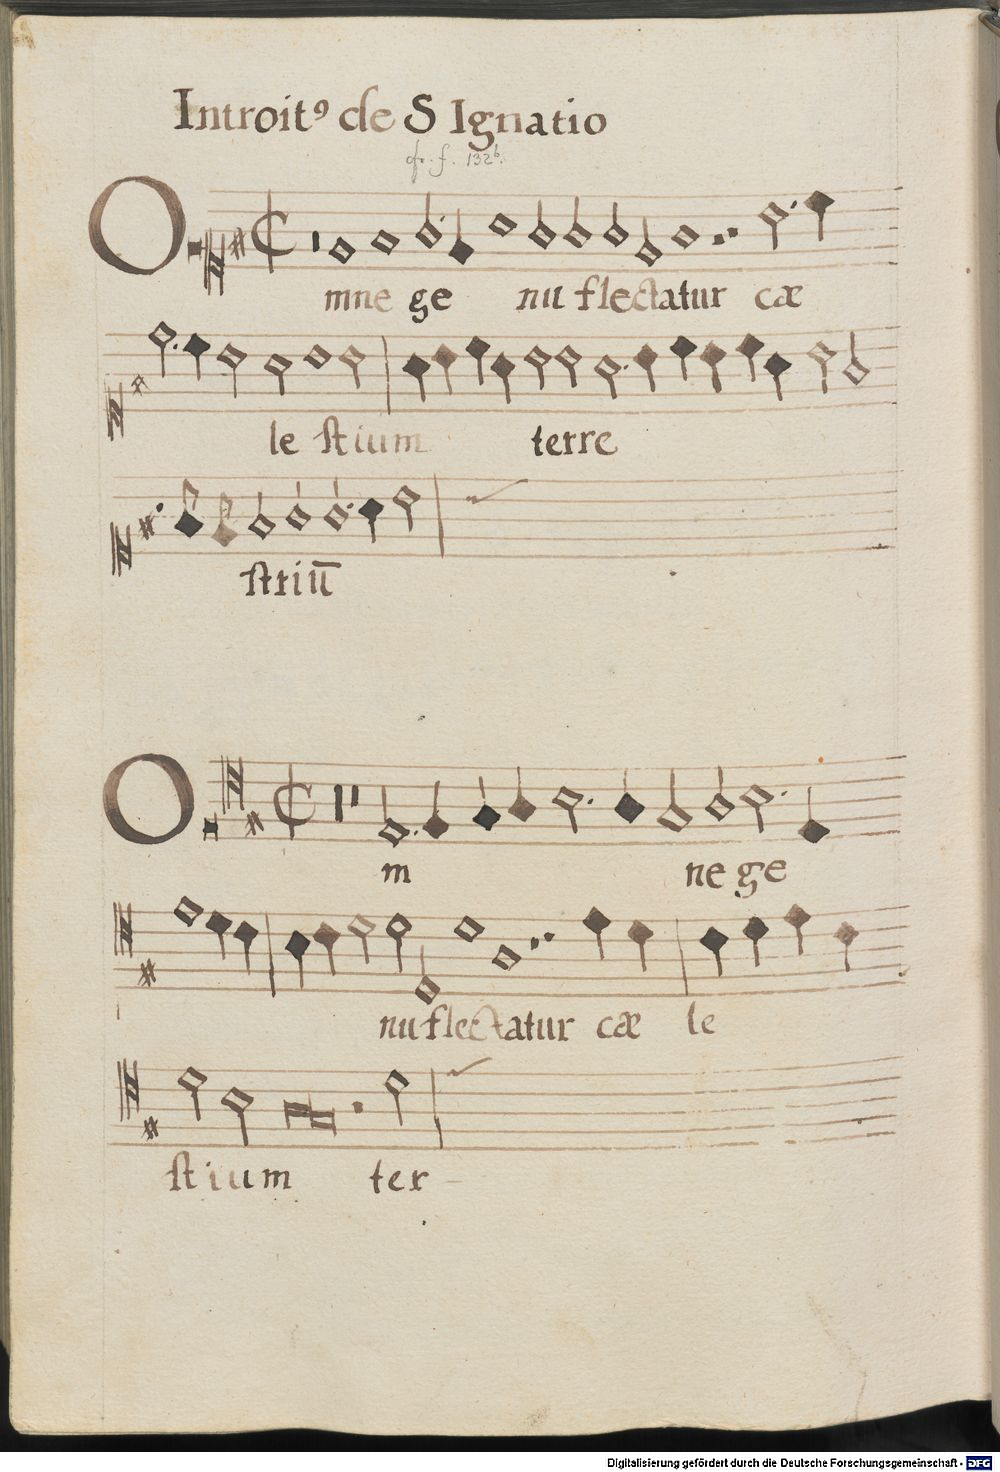 Introit⁹ de S Ignatio
cfr. f. 132ᵇ.
O
mne ge nu flectatur cæ
le stium terre
striū
O
m ne ge
nu flectatur cæ le
stium ter
Digitalisierung gefördert durch die Deutsche Forschungsgemeinschaft - DFG